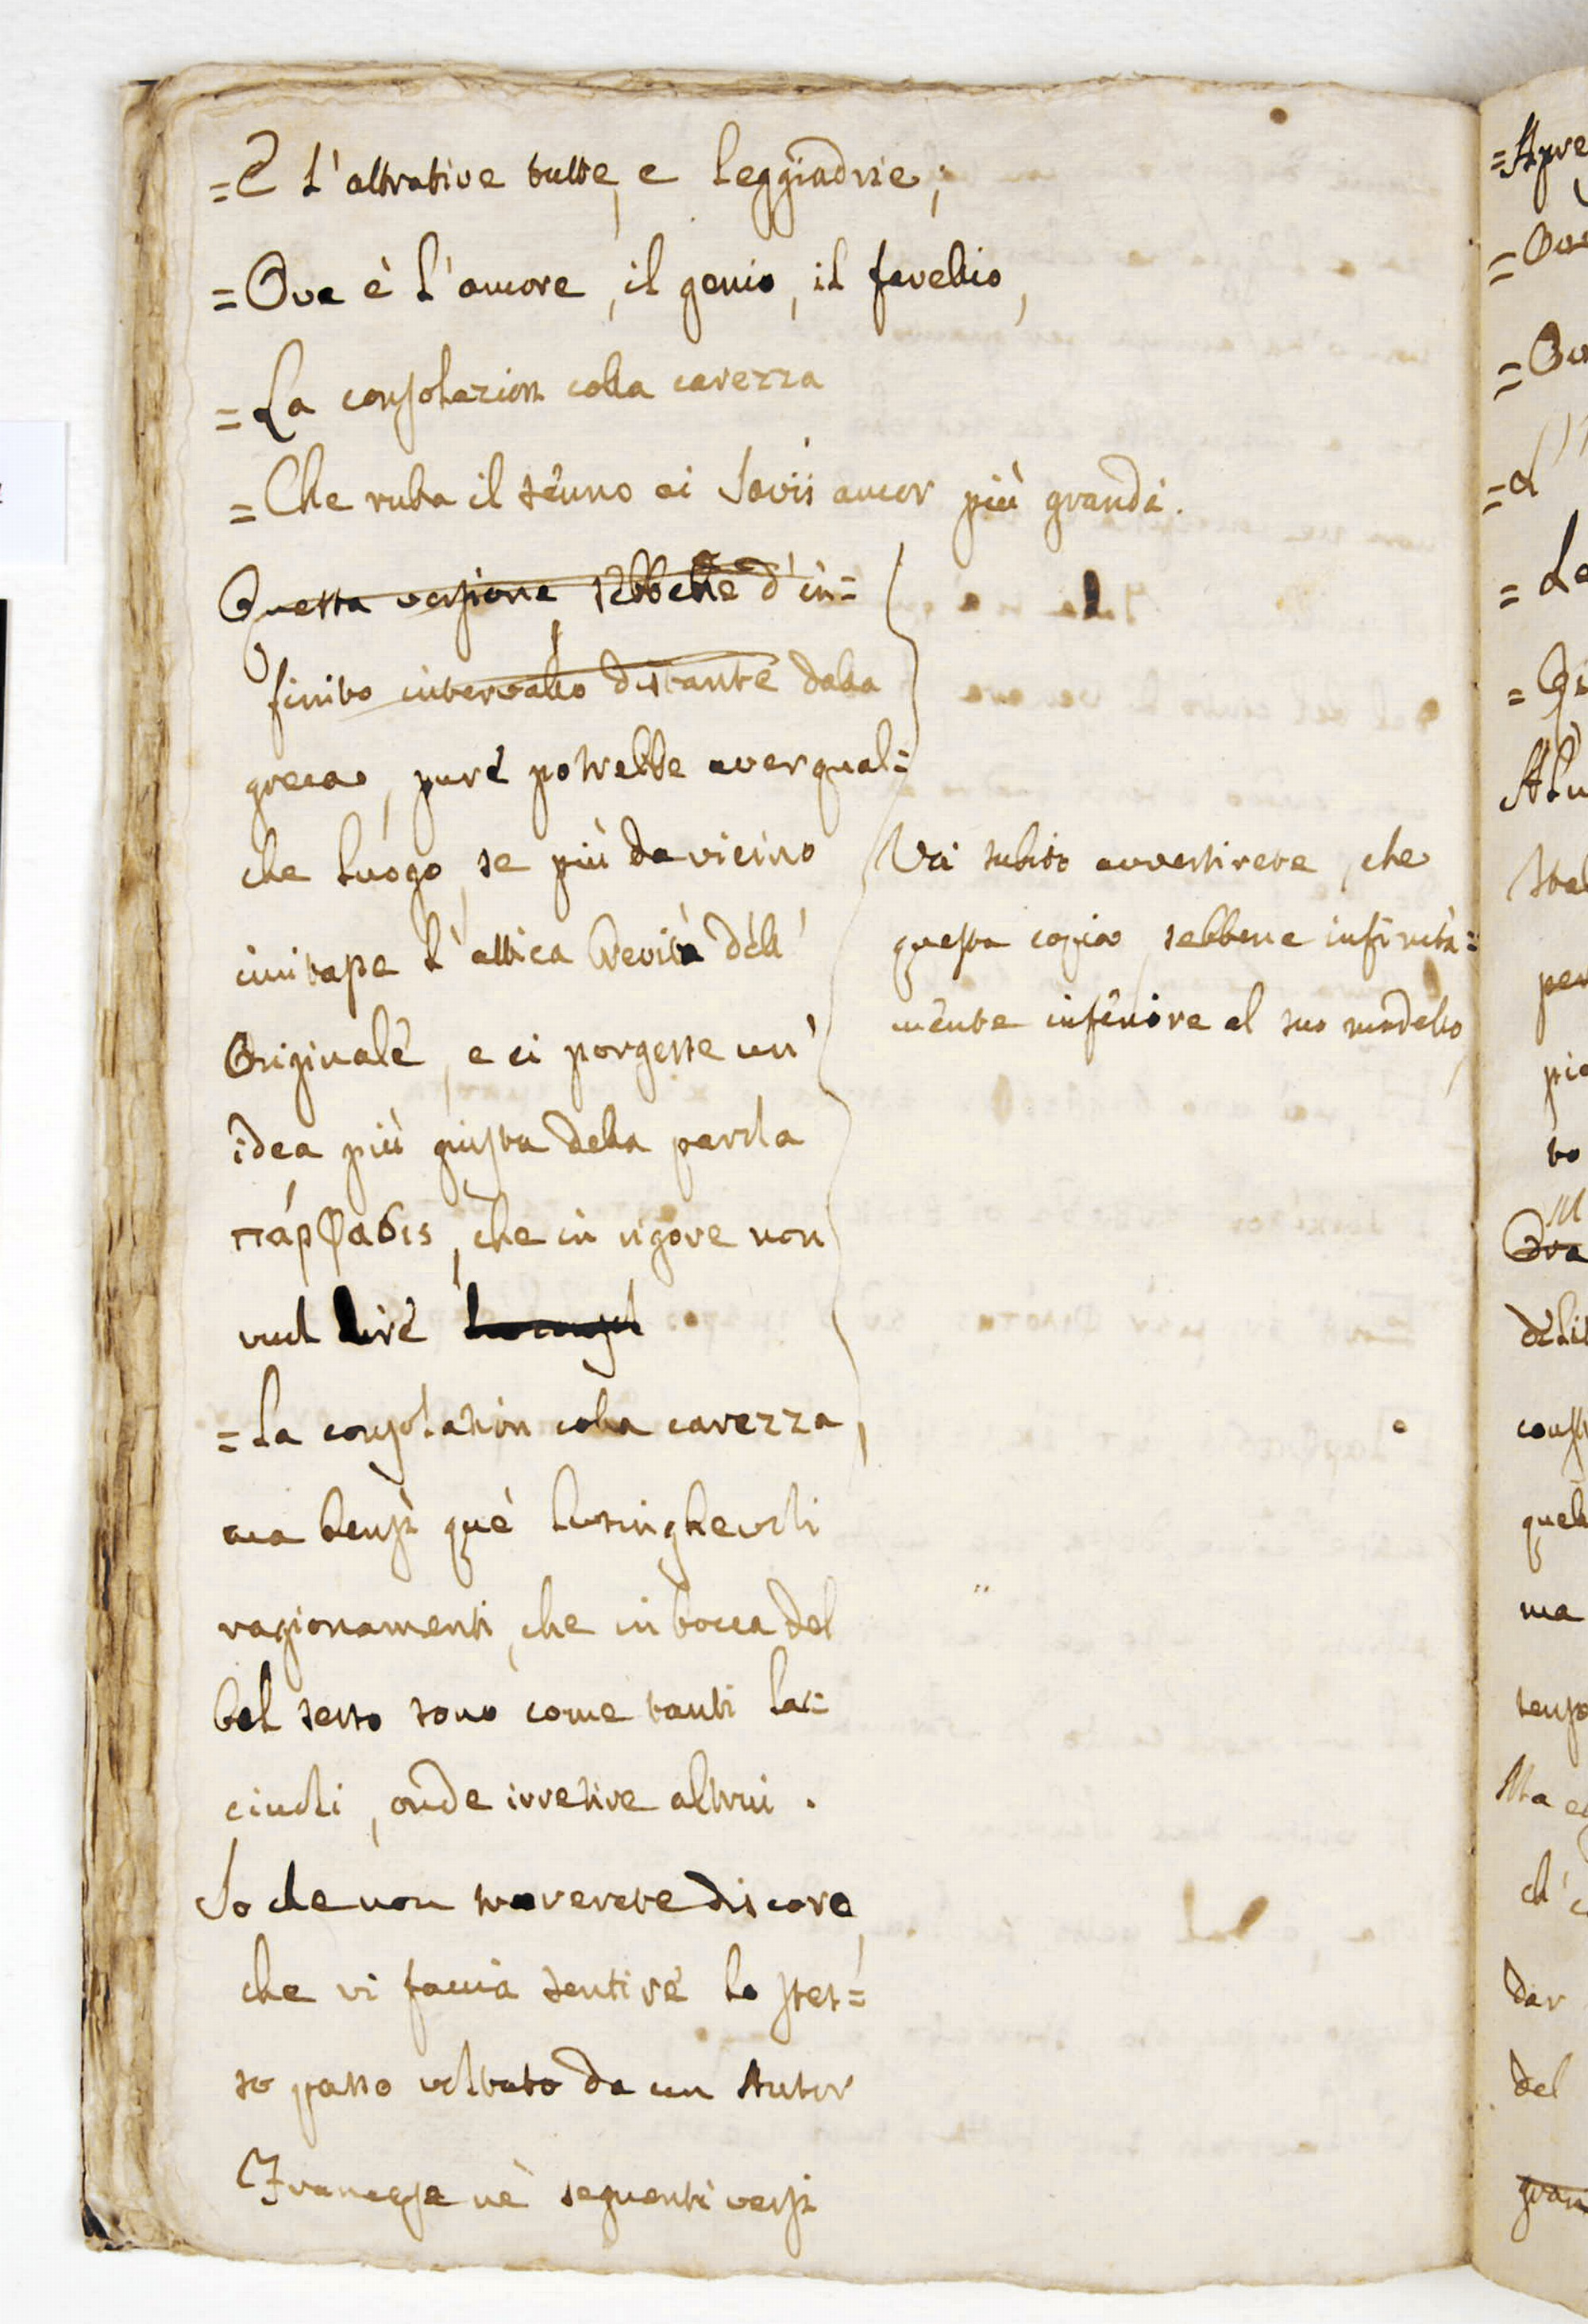 =E l'attrative tutte, e leggiadrie;
=Ove è l'amore, il genio, il favellio,
=La consolazion colla carezza
=Che ruba il senno ai Savii ancor più grandi.
Questa versione, sebbene d'in=
finito intervallo distante dalla
greca, pure potrebbe aver qual=
che luogo, se più da vicino
imitasse l'attica brevità dell'
Originale, e ci porgesse un'
idea più giusta della parola
πάρφασις, che in rigore non
vuol dire
=la consolazion colla carezza,
ma bensì què lusinghevoli
ragionamenti, che in bocca del
bel sesso sono come tanti lac=
ciuoli, onde irretire altrui.
So che non mi averete discaro,
che vi faccia sentire lo stes=
so passo voltato da un Autor
Franceze nè seguenti versi
Voi subito avvertirete, che
questa copia, sebbene infinita=
mente inferiore al suo modello,
=Apre
=Ove
=La
per
to
Ora
quel
ma
Ma
ch'
dar
del